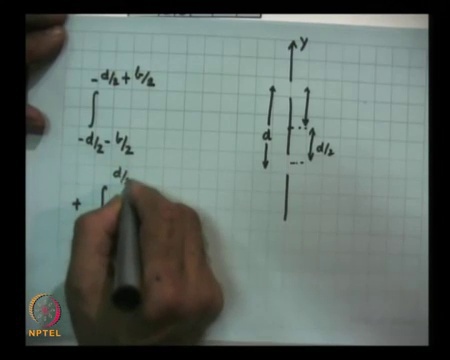 -d/2 + b/2
∫
-d/2 - b/2
d/2
+ ∫
Y
d
d/2
NPTEL